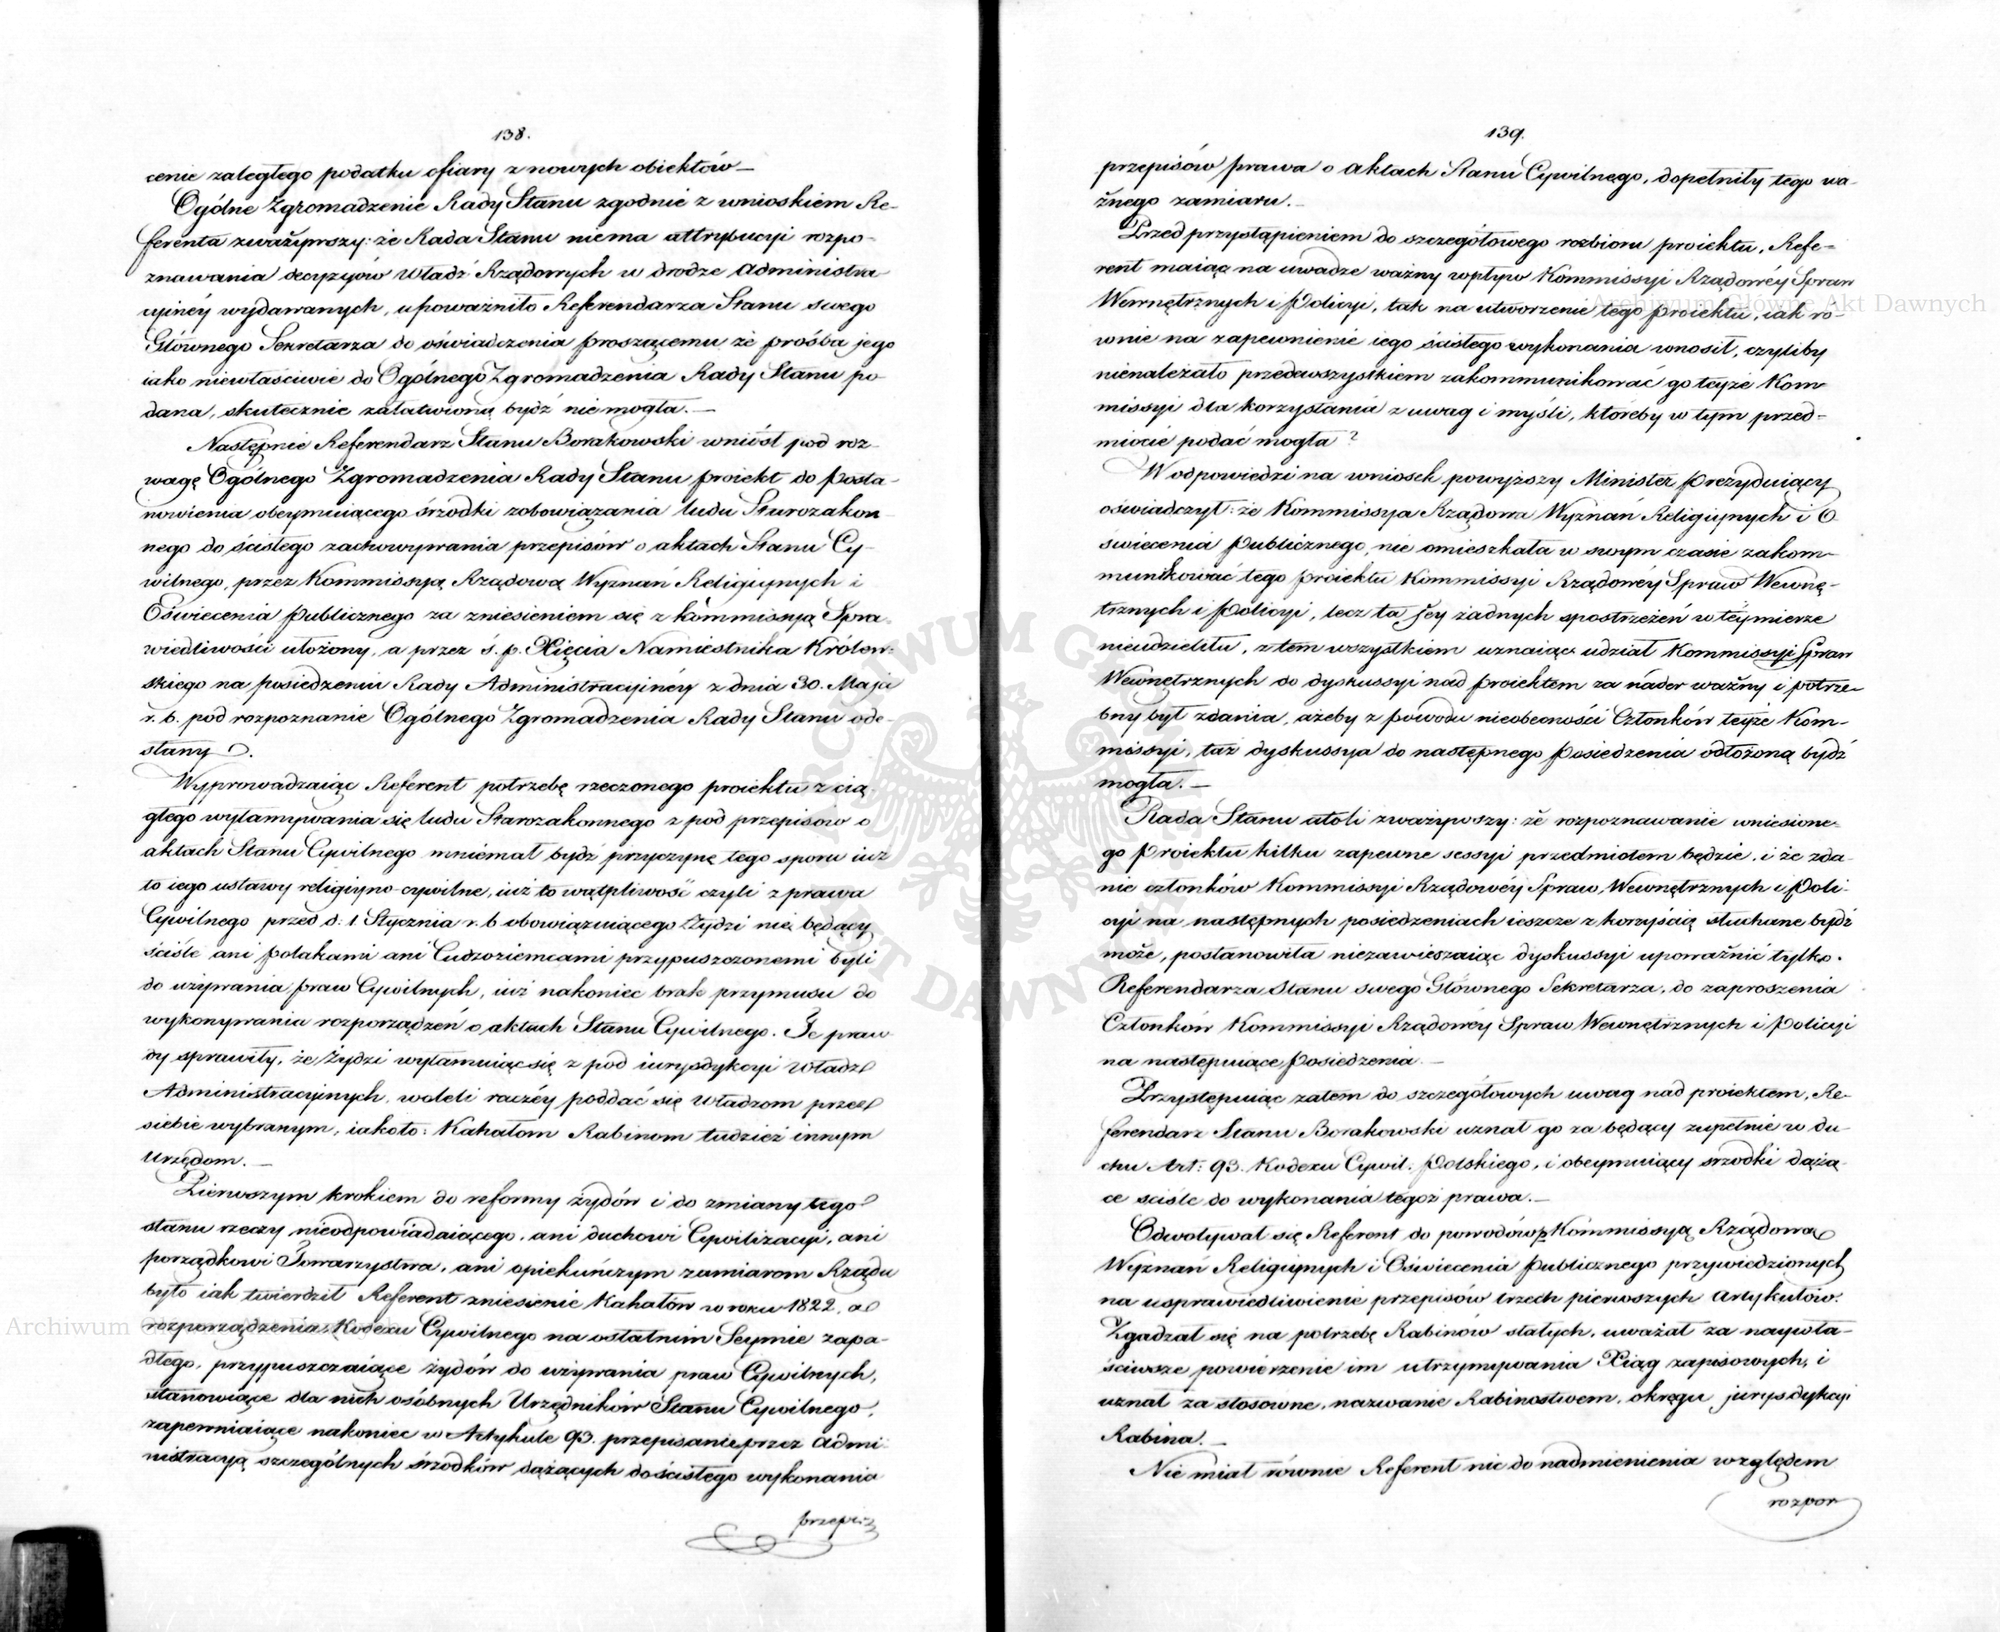 138.
cenie zaległego podatku ofiary z nowych obiektów —
Ogólne Zgromadzenie Rady Stanu zgodnie z wnioskiem Re-
ferenta zważywszy: że Rada Stanu niema attrybucyi rozpo-
znawania decyzyów Władz Rządowych w drodze Administra
cyinéy wydawanych, upoważniło Referendarza Stanu swego
Głównego Sekretarza do oświadczenia proszącemu że prośba jego
iako niewłaściwie do Ogólnego Zgromadzenia Rady Stanu po
dana, skutecznie załatwioną bydź niemogła. —
Następnie Referendarz Stanu Borakowski wniósł pod roz-
wagę Ogólnego Zgromadzenia Rady Stanu proiekt do Posta-
nowienia obeymuiącego śrzodki zobowiązania ludu Starozakon
nego do ścisłego zachowywania przepisów o aktach Stanu Cy-
wilnego, przez Kommissyą Rządową Wyznań Religiynych i
Oświecenia Publicznego za zniesieniem się z kommissyą Spra-
wiedliwości ułożony, a przez ś. p. Xięcia Namiestnika Królew-
skiego na posiedzeniu Rady Administracyinéy z dnia 30. Maja
r. b. pod rozpoznanie Ogólnego Zgromadzenia Rady Stanu ode-
słany.
Wyprowadzaiąc Referent potrzebę rzeczonego proiektu z cią
głego wyłamywania się ludu Starozakonnego z pod przepisów o
aktach Stanu Cywilnego mniemał bydź przyczynę tego sporu iuż
to iego ustawy religiyno-cywilne, iuż to wątpliwość czyli z prawa
Cywilnego przed d: 1. Stycznia r. b obowiązuiącego Żydzi nie będący
ściśle ani Polakami ani Cudzoziemcami przypuszczonemi byli
do używania praw Cywilnych, iuż nakoniec brak przymusu do
wykonywania rozporządzeń o aktach Stanu Cywilnego. Te praw
dy sprawiły, że Żydzi wyłamuiąc się z pod iurysdykcyi Władz
Administracyinych, woleli raczéy poddać się Władzom przez
siebie wybranym, iakoto: Kahałom Rabinom tudzież innym
Urzędom. —
Pierwszym krokiem do reformy żydów i do zmiany tego
stanu rzeczy nieodpowiadaiącego, ani duchowi Cywilizacyi, ani
porządkowi Towarzystwa, ani opiekuńczym zamiarom Rządu
było iak twierdził Referent zniesienie Kahałów w roku 1822, a
rozporządzenia Kodexu Cywilnego na ostatnim Seymie zapa-
dłego, przypuszczaiące żydów do używania praw Cywilnych,
stanowiące dla nich osóbnych Urzędników Stanu Cywilnego,
zapewniaiące nakoniec w Artykule 93. przepisanie przez Admi-
nistracyą szczególnych śrzodków dążących do ścisłego wykonania
przepi-
139.
przepisów prawa o aktach Stanu Cywilnego, dopełniły tego wa-
żnego zamiaru. —
Przed przystąpieniem do szczegółowego rozbioru proiektu, Refe-
rent maiąc na uwadze ważny wpływ Kommissyi Rządowéy Spraw
Wewnętrznych i Policyi, tak na utworzenie tego proiektu, iak ró-
wnie na zapewnienie iego ścisłego wykonania wnosił, czyliby
nienależało przedewszystkiem zakommunikować go teyże Kom
missyi dla korzystania z uwag i myśli, któreby w tym przed-
miocie podać mogła?
W odpowiedzi na wniosek powyższy Minister Prezyduiący
oświadczył: że Kommissya Rządowa Wyznań Religiynych i O
świecenia Publicznego, nie omieszkała w swym czasie zakom-
munikować tego proiektu Kommissyi Rządowéy Spraw Wewnę-
trznych i Policyi, lecz ta Jey żadnych spostrzeżeń w téymierze
nieudzieliła, z tem wszystkiem uznaiąc udział Kommissyi Spraw
Wewnętrznych do dyskussyi nad proiektem za náder ważny i potrze-
bny był zdania, ażeby z powodu nieobecności Członków teyże Kom-
missyi, taż dyskussya do następnego Posiedzenia odłożoną bydź
mogła. —
Rada Stanu atoli zważywszy: że rozpoznawanie wniesione-
go Proiektu kilku zapewne sessyi przedmiotem będzie, i że zda-
nie członków Kommissyi Rządowéy Spraw Wewnętrznych i Poli-
cyi na następnych posiedzeniach ieszcze z korzyścią słuchane bydź
może, postanowiła niezawieszaiąc dyskussyi upoważnić tylko
Referendarza Stanu swego Głównego Sekretarza, do zaproszenia
Członków Kommissyi Rządowéy Spraw Wewnętrznych i Policyi
na następuiące Posiedzenia. —
Przystępuiąc zatem do szczegółowych uwag nad proiektem, Re-
ferendarz Stanu Borakowski uznał go za będący zupełnie w du-
chu Art: 93. Kodexu Cywil: Polskiego, i obeymuiący śrzodki dążą-
ce ściśle do wykonania tegoż prawa. —
Odwoływał się Referent do powodów Kommissyą Rządową
Wyznań Religiynych i Oświecenia Publicznego przywiedzionych
na usprawiedliwienie przepisów trzech pierwszych Artykułów.
Zgadzał się na potrzebę Rabinów stałych, uważał za naywła-
ściwsze powierzenie im utrzymywania Xiąg zapisowych, i
uznał za stosowne, nazwanie Rabinostwem, okręgu jurysdykcyi
Rabina. —
Nie miał równie Referent nic do nadmienienia względem
rozpor
Archiwum Główne Akt Dawnych